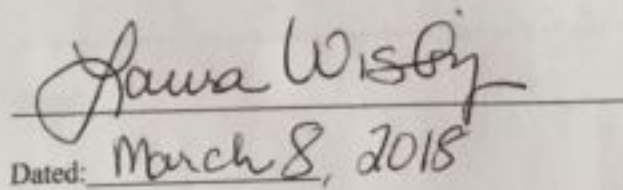 Laura Wisby
Dated: March 8, 2018